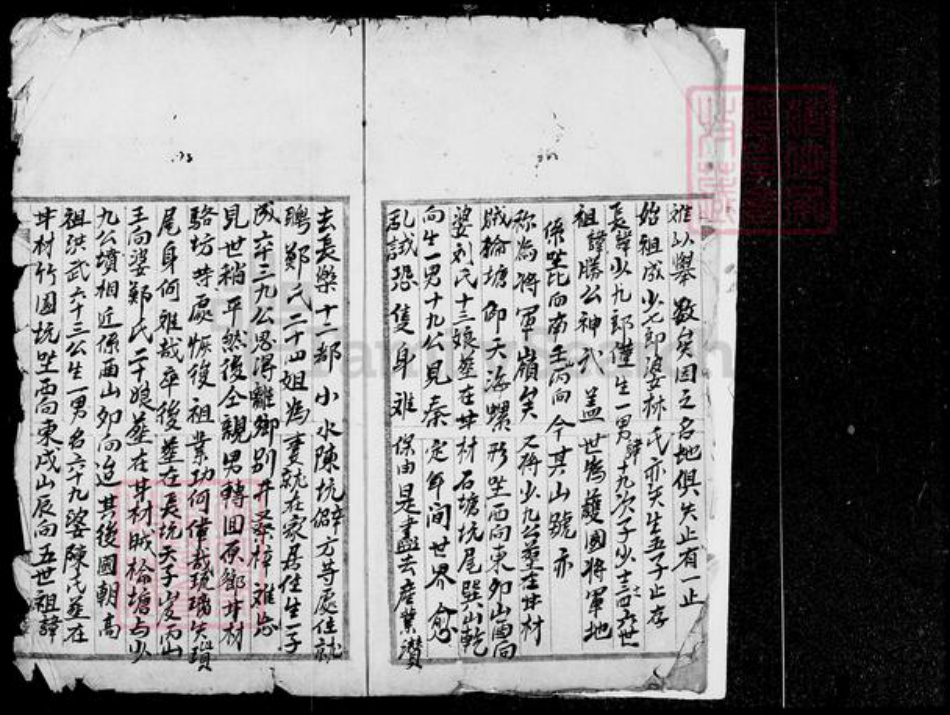 难以舉數矣因之名地俱失止有一止
始祖成少七郎婆林氏亦失生五子止存
長諱少九郎僅生一男諱十九次子少士四六世
祖諱勝公神武盖世為護國將軍地
係坐北向南壬丙向今其山號亦
称為將軍嶺矣又將少九公葬在井材
賊棆塘仰天海螺形坐西向東卯山酉向
婆刘氏十三娘葬在井材石塘坑尾巽山乾
向生一男十九公見秦定年間世界愈
乱誠恐隻身难保由是盡去產業濳
去長樂十二都小水陳坑僻方等處住就
聘鄭氏二十四姐為妻就在家居住生一子
成六十三九公思得離鄉別井桑梓难忘
見世稍平然後仝親男轉回原鄉井材
駱坊等處恢復祖業功何偉哉瑣瑣失瑣
尾身何难哉卒後葬在長坑天子岌丙山
壬向婆鄭氏二十娘葬在井材賊棆塘与少
九公墳相近係酉山卯向迨其後國朝高
祖洪武六十三公生一男名六十九婆陳氏葬在
井材竹園坑坐西向東戌山辰向五世祖諱